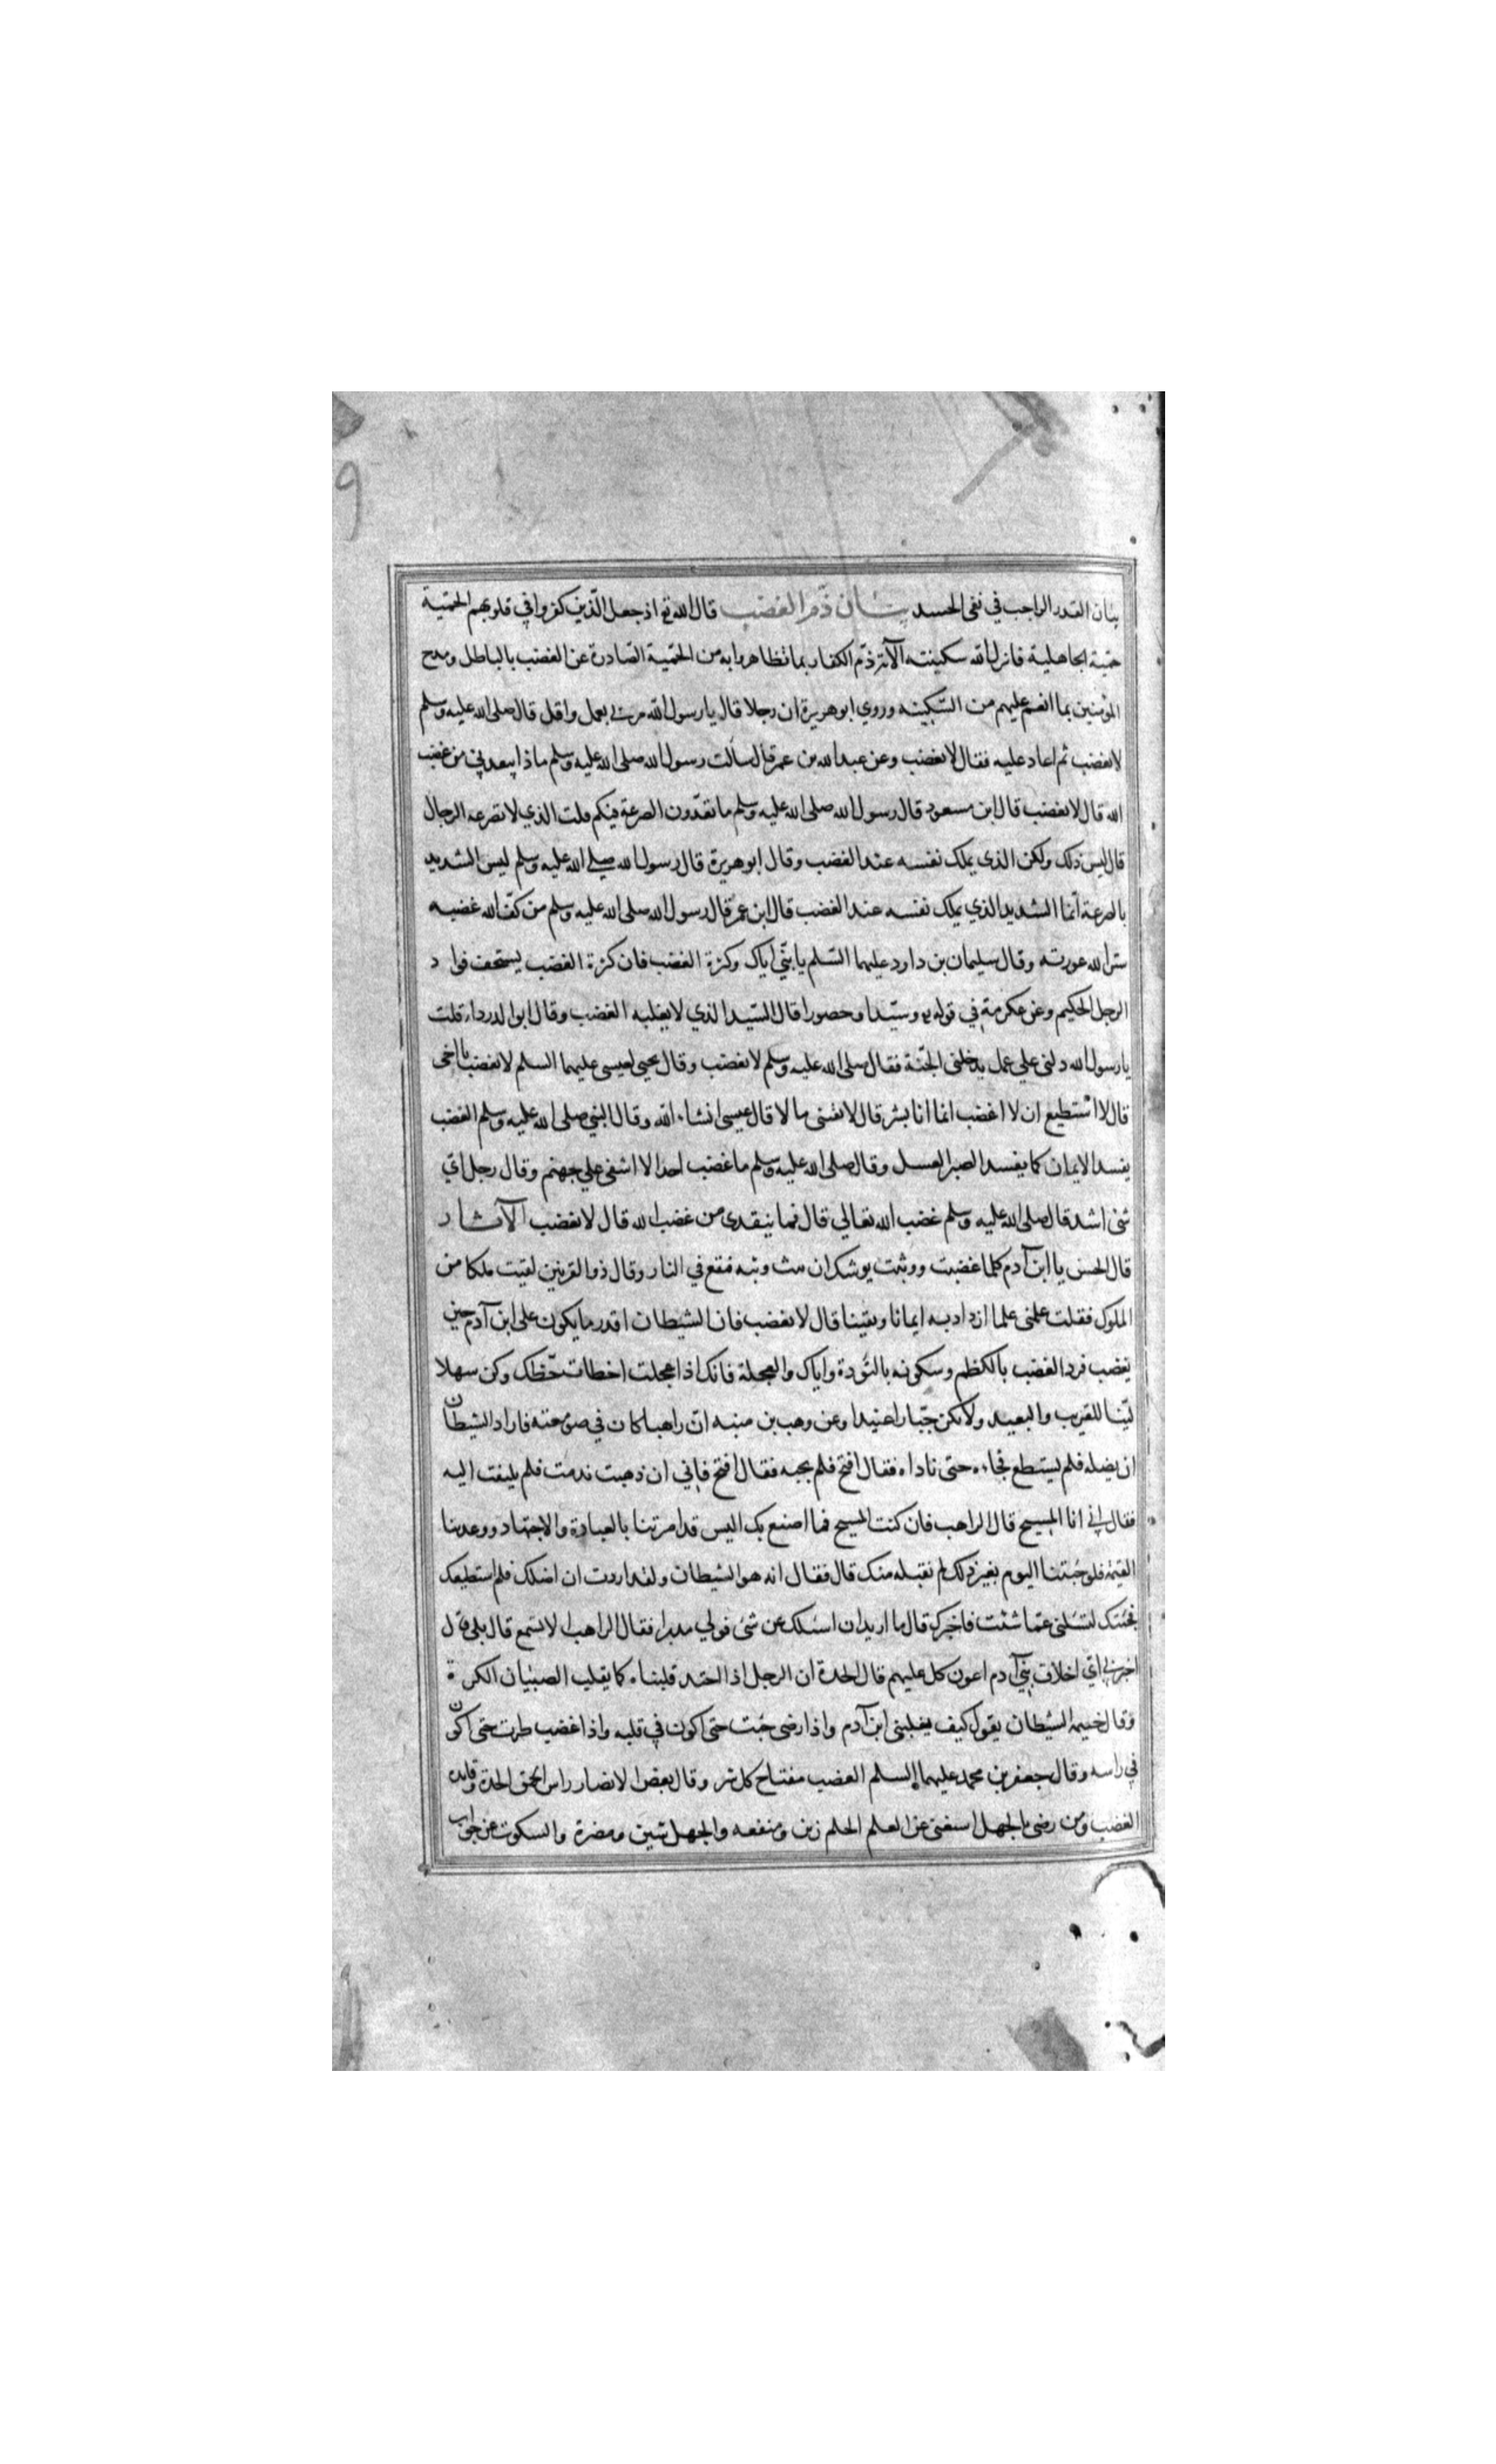 بيان القدر الواجب في نفى الحسد بيان ذم الغضب قال الله تع اذ جعل الّذين كفروا في قلوبهم الحميّة
حميّة الجاهلية فانزل الله سكينته الآية ذمّ الكفار بما تظاهروا به من الحميّة الصّادرة عن الغضب بالباطل ومدح
المؤمنين بما انعم عليهم من السّكينه وروي ابو هريرة ان رجلا قال يا رسول الله مرني بعمل واقل قال صلى الله عليه وسلم
لا تغضب ثم اعاد عليه فقال لا تغضب وعن عبد الله بن عمر قال سألت رسول الله صلى الله عليه وسلم ماذا يبعدني من غضب
الله قال لا تغضب قال ابن مسعود قال رسول الله صلى الله عليه وسلم ما تعدّون الصرعة فيكم قلت الذي لا تصرعه الرجال
قال ليس ذلك ولكن الذى يملك نفسه عند الغضب وقال ابو هريرة قال رسول الله صلى الله عليه وسلم ليس الشديد
بالصرعة انّما الشديد الذي يملك نفسه عند الغضب قال ابن عمر قال رسول الله صلى الله عليه وسلم من كفّ الله غضبه
ستر الله عورته وقال سليمان بن داود عليهما السّلم يا بنّي اياك وكثرة الغضب فان كثرة الغضب يستخف فواد
الرجل الحكيم وعن عكرمة في قوله تع وسيّدا وحصورا قال السّيد الذي لا يغلبه الغضب وقال ابو الدرداء قلت
يا رسول الله دلنى علي عمل يدخلنى الجنّة فقال صلى الله عليه وسلم لا تغضب وقال يحيى لعيسى عليهما السلم لا تغضب يا اخى
قال لا استطيع ان لا اغضب انما انا بشر قال لا تقتنى مالا قال عيسى انشاء الله وقال النبي صلى الله عليه وسلم الغضب
يفسد الايمان كما يفسد الصبر العسل وقال صلى الله عليه وسلم ما غضب احد الا اشفى علي جهنم وقال رجل اي
شئ اشد قال صلى الله عليه وسلم غضب الله تعالي قال فما ينقذى من غضب الله قال لا تغضب الآثار
قال الحسن يا ابن آدم كلما غضبت ووثبت يوشك ان تثب وثبه فتقع في النار وقال ذو القرنين لقيت ملكا من
الملوك فقلت علمنى علما ازداد به ايمانا ويقينا قال لا تغضب فان الشيطان اقدر ما يكون على ابن آدم حين
يغضب فرد الغضب بالكظم وسكونه بالتؤدة واياك والعجلة فانك اذا عجلت اخطات حظك وكن سهلا
ليّنا للقريب والبعيد ولا تكن جبّارا عنيدا وعن وهب بن منبه انّ راهبا كان في صومعته فاراد الشيطان
ان يضله فلم يستطع فجاءه حتى ناداه فقال افتح فلم يجبه فقال افتح فإني ان ذهبت ندمت فلم يلتفت اليه
فقال إني انا المسيح قال الراهب فان كنت المسيح فما اصنع بك اليس قد امرتنا بالعبادة والاجتهاد ووعدتنا
القيمة فلو جئتنا اليوم بغير ذلك لم نقبله منك قال فقال انه هو الشيطان ولقد اردت ان اضلك فلم استطيعك
فجئتك لتسئلنى عمّا شئت فاخبرك قال ما اريد ان اسئلك عن شئ فولي مدبرا فقال الراهب الا تسمع قال بلى قال
اخبرني اي اخلاق بني آدم اعون كل عليهم قال الحدة ان الرجل اذا احتد قلبناه كما يقلب الصبيان الكرة
وقال خيثمة الشيطان يقول كيف يغلبنى ابن آدم واذا رضى جئت حتى اكون في قلبه واذا غضب طرت حتى اكون
في راسه وقال جعفر بن محمد عليهما السلم الغضب مفتاح كل شر وقال بعض الانصار راس الحمق الحدة وقايده
الغضب ومن رضى بالجهل استغنى عن العلم الحلم زين ومنفعه والجهل شين ومضرة والسكوت عن جواب